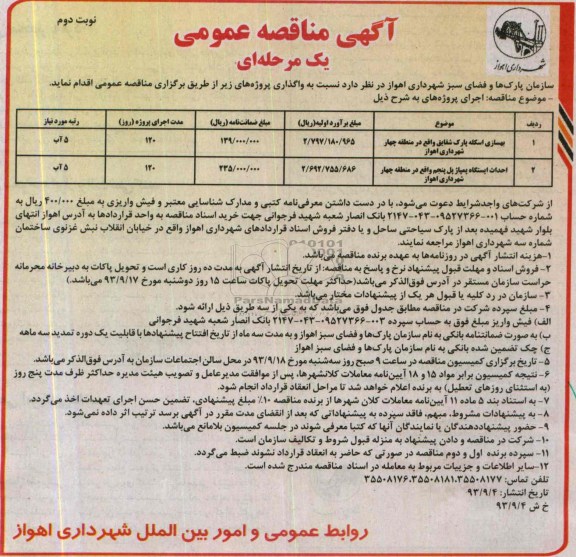 نوبت دوم
آگهی مناقصه عمومی
یک مرحله‌ای
شهرداری اهواز
سازمان پارک‌ها و فضای سبز شهرداری اهواز در نظر دارد نسبت به واگذاری پروژه‌های زیر از طریق برگزاری مناقصه عمومی اقدام نماید.
- موضوع مناقصه: اجرای پروژه‌های به شرح ذیل
ردیف موضوع مبلغ برآورد اولیه(ریال) مبلغ ضمانت‌نامه (ریال) مدت اجرای پروژه (روز) رتبه مورد نیاز
۱ بهسازی اسکله پارک شقایق واقع در منطقه چهار شهرداری اهواز ۲/۷۹۷/۱۸۰/۹۶۵ ۱۳۹/۰۰۰/۰۰۰ ۱۲۰ ۵ آب
۲ احداث ایستگاه پمپاژ پل پنجم واقع در منطقه چهار شهرداری اهواز ۲/۶۹۲/۷۵۵/۶۸۶ ۲۳۵/۰۰۰/۰۰۰ ۱۲۰ ۵ آب
از شرکت‌های واجدشرایط دعوت می‌شود، با در دست داشتن معرفی‌نامه کتبی و مدارک شناسایی معتبر و فیش واریزی به مبلغ ۴۰۰/۰۰۰ ریال به
شماره حساب ۰۰۱-۰۹۵۲۷۳۶۶-۰۴۳-۲۱۴۷ بانک انصار شعبه شهید فرجوانی جهت خرید اسناد مناقصه به واحد قراردادها به آدرس اهواز انتهای
بلوار شهید فهمیده بعد از پارک سیاحتی ساحل و یا دفتر فروش اسناد قراردادهای شهرداری اهواز واقع در خیابان انقلاب نبش غزنوی ساختمان
شماره سه شهرداری اهواز مراجعه نمایند.
۱- هزینه انتشار آگهی در روزنامه‌ها به عهده برنده مناقصه می‌باشد.
۲- فروش اسناد و مهلت قبول پیشنهاد نرخ و پاسخ به مناقصه: از تاریخ انتشار آگهی به مدت ده روز کاری است و تحویل پاکات به دبیرخانه محرمانه
حراست سازمان مستقر در آدرس فوق‌الذکر می‌باشد(حداکثر مهلت تحویل پاکات ساعت ۱۵ روز دوشنبه مورخ ۹۳/۹/۱۷ می‌باشد.)
۳- سازمان در رد کلیه یا قبول هر یک از پیشنهادات مختار می‌باشد.
۴- مبلغ سپرده شرکت در مناقصه مطابق جدول فوق می‌باشد که به یکی از سه طریق ذیل ارائه شود.
الف) فیش واریز مبلغ فوق به حساب سپرده ۰۰۳-۰۹۵۲۷۳۶۶-۰۴۳-۲۱۴۷ بانک انصار شعبه شهید فرجوانی
ب) به صورت ضمانتنامه بانکی به نام سازمان پارک‌ها و فضای سبز اهواز و به مدت سه ماه از تاریخ افتتاح پیشنهادها با قابلیت یک دوره تمدید سه ماهه
ج) چک تضمین شده بانکی به نام سازمان پارک‌ها و فضای سبز اهواز
۵- تاریخ برگزاری کمیسیون مناقصه در ساعت ۹ صبح روز سه‌شنبه مورخ ۹۳/۹/۱۸ در محل سالن اجتماعات سازمان به آدرس فوق‌الذکر می‌باشد.
۶- نتیجه کمیسیون برابر مواد ۱۵ و ۱۸ آیین‌نامه معاملات کلانشهرها، پس از موافقت مدیرعامل و تصویب هیئت مدیره حداکثر ظرف مدت پنج روز
(به استثنای روزهای تعطیل) به برنده اعلام خواهد شد تا مراحل انعقاد قرارداد انجام شود.
۷- به استناد بند ۵ ماده ۱۱ آیین‌نامه معاملات کلان شهرها از برنده مناقصه ۱۰٪ مبلغ پیشنهادی، تضمین حسن اجرای تعهدات اخذ می‌گردد.
۸- به پیشنهادات مشروط، مبهم، فاقد سپرده به پیشنهاداتی که بعد از انقضای مدت مقرر در آگهی برسد ترتیب اثر داده نمی‌شود.
۹- حضور پیشنهاددهندگان یا نمایندگان آنها که کتبا معرفی شوند در جلسه کمیسیون بلامانع می‌باشد.
۱۰- شرکت در مناقصه و دادن پیشنهاد به منزله قبول شروط و تکالیف سازمان است.
۱۱- سپرده برنده اول و دوم مناقصه در صورتی که حاضر به انعقاد قرارداد نشوند ضبط می‌گردد.
۱۲- سایر اطلاعات و جزییات مربوط به معامله در اسناد مناقصه مندرج شده است.
تلفن تماس: ۳۵۵۰۸۱۷۷، ۳۵۵۰۸۱۸۱، ۳۵۵۰۸۱۷۶
تاریخ انتشار: ۹۳/۹/۴
خ ش ۹۳/۹/۴
روابط عمومی و امور بین الملل شهرداری اهواز